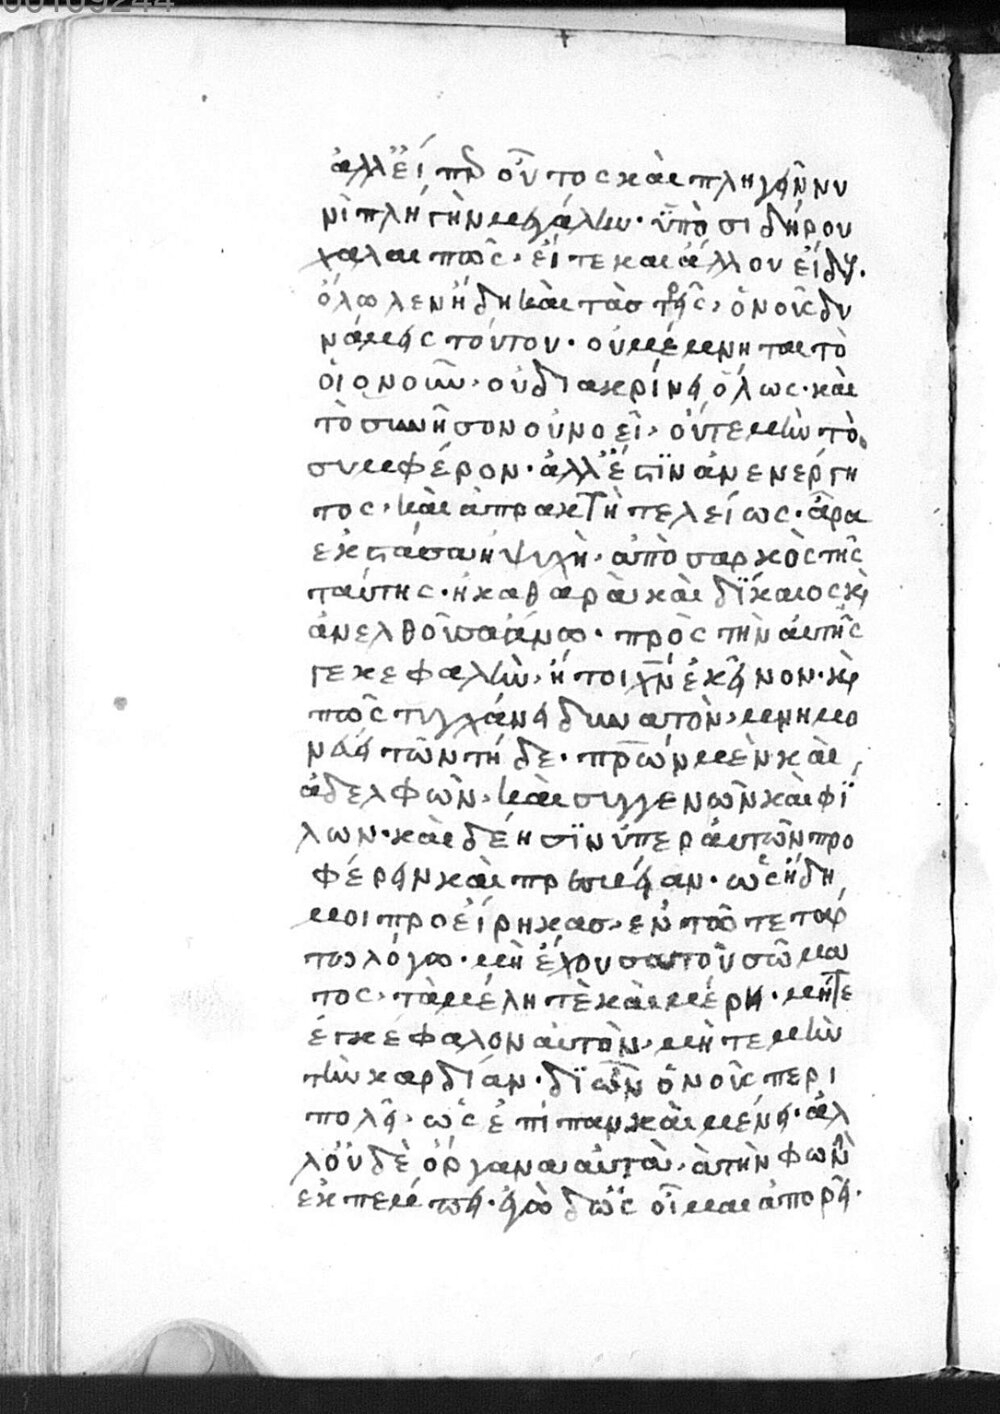 ἀλλ' εἴπερ οὗτος καὶ πληγῇ νυ
νὶ πλήττην μεγάλην· ὑπὸ σιδήρου
χαλαιπῶς, εἴτε καὶ ἄλλου εἴδους·
ὄλωλεν ἤδη καὶ τὰς τῆς, ὁ νοῦς δυ
νάμεις τούτου· οὐ μέμνηται τὸ
οἱονοῦν· οὐ διακρίνει ὅλως· καὶ
τὸ συνῆσον οὐ νοεῖ, οὔτε μὴν τὸ
συμφέρον· ἀλλ' ἔστιν ἀνενέργη
τος, καὶ ἄπρακτη τελείως· ἄρα
ἐκστάσα ἡ ψυχὴ, ἀπὸ σαρκὸς τῆς
ταύτης· ἡ καθαρὰ καὶ δίκαιος καὶ
ἀνελθοῦσα ἄνω· πρὸς τὴν αὐτῆς
γε κεφαλὴν, ἤτοι χν ἐκεῖνον· καὶ
πῶς τυγχάνει δυνατὸν, μνημο
νεύει τῶν τῇδε· πρων μὲν καὶ
ἀδελφῶν, καὶ συγγενῶν καὶ φί
λων· καὶ δέησιν ὑπὲρ αὐτῶν προ
φέρειν καὶ πρεσβείαν· ὡς ἤδη
μοι προείρηκας, ἐν τῶ τετάρ
τω λόγω· μὴ ἔχουσα τοῦ σώμα
τος, τὰ μέλη τὲ καὶ μέρη· μήτε
ἐγκέφαλον αὐτὸν, μήτε μὴν
τὴν καρδίαν· δι' ὧν ὁ νοῦς περι
πολεῖ, ὡς ἐπίπαν καὶ μένει· ἀλ
λ' οὐδὲ ὄργανα αὐτὰ, ἃ τὴν φωνὴν
ἐκπέμπει· ἐγὼ δ' ὧς οἶμαι ἀπορεῖ·